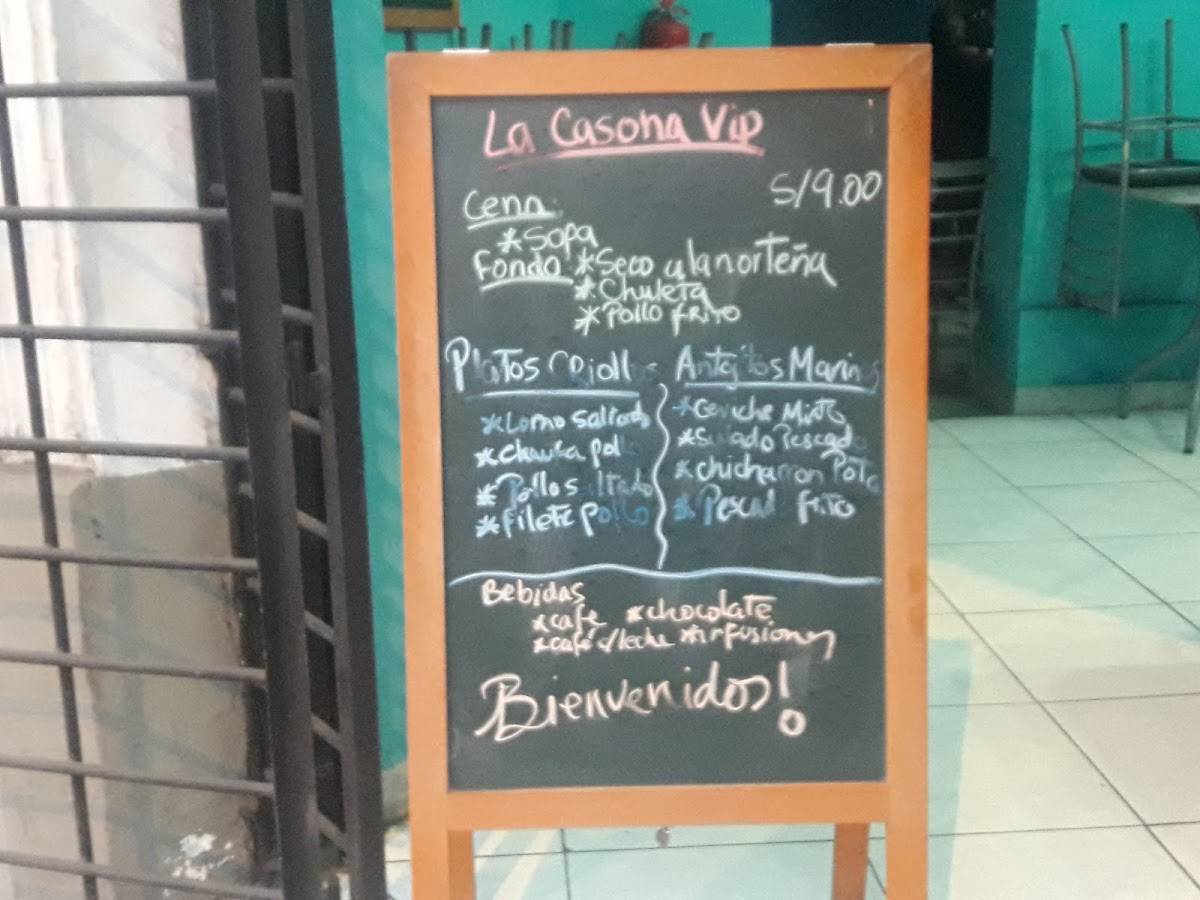 La Casona Vip
S/9.00
Cena:
*Sopa
Fondo: *Seco a la norteña
*Chuleta
*Pollo frito
Platos Criollos
*Lomo saltado
*Chaufa pollo
*Pollo saltado
*filete pollo
Antojitos Marinos
*Ceviche Mixto
*Sudado Pescado
*chicharron Pota
*Pescad frito
Bebidas
*cafe *chocolate
*café c/leche *infusiones
Bienvenidos!